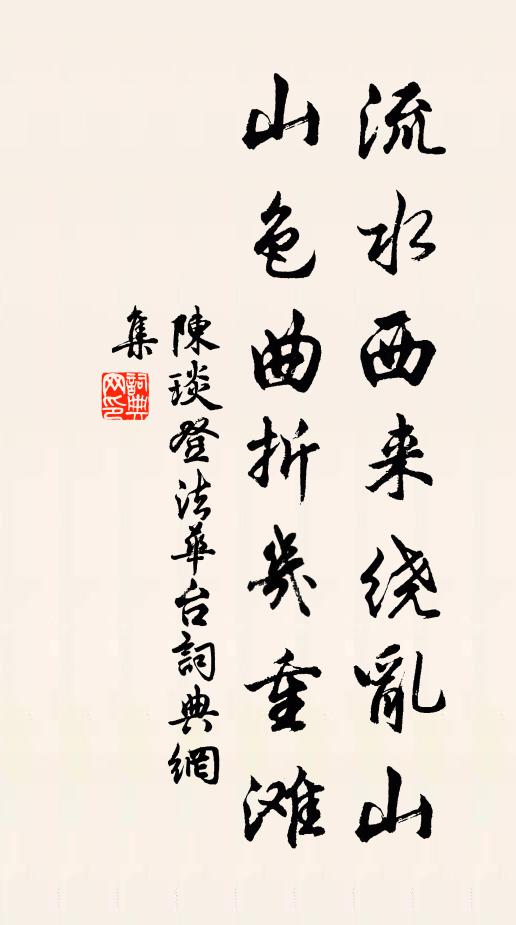 流水西来绕亂山
山色曲折幾重滩
陳琰登法華台詞典網
集
詞典
网印